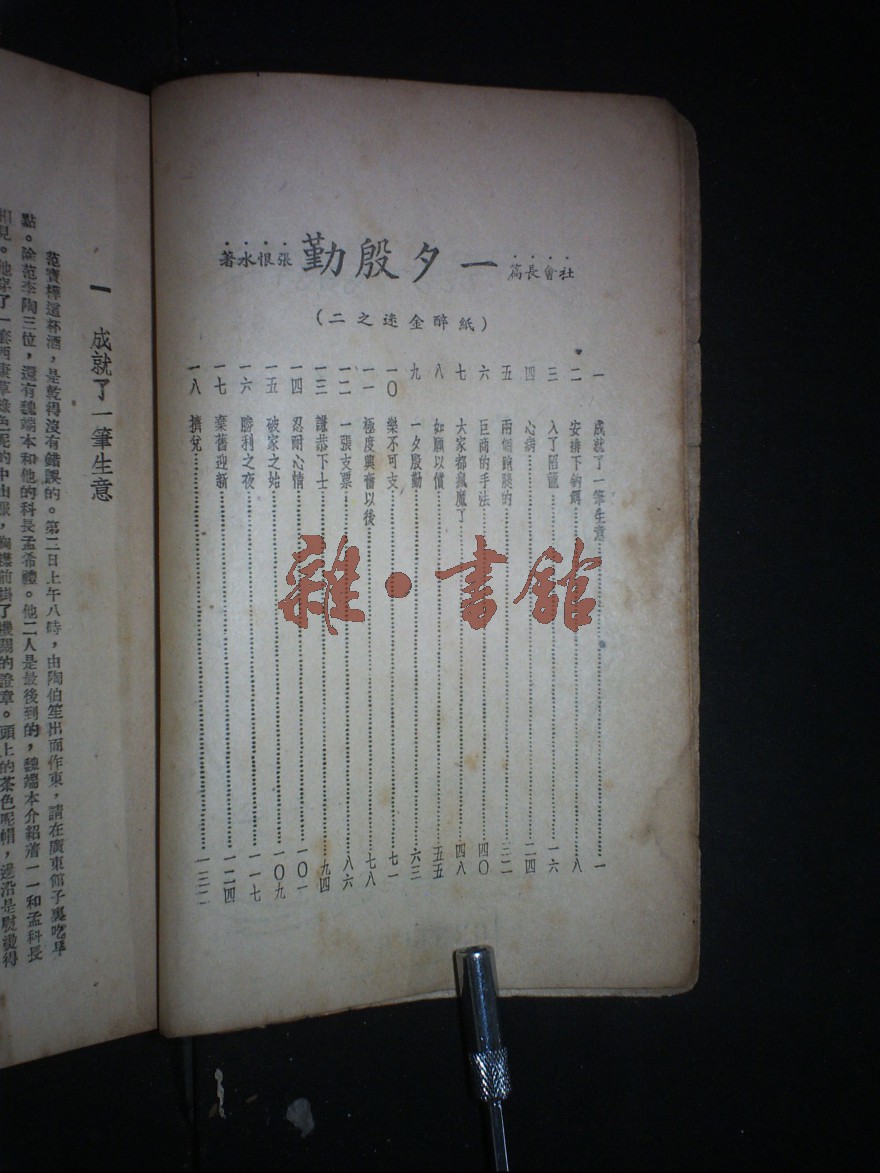 社會長篇 一夕殷勤 張恨水著
(紙醉金迷之二)
一 成就了一筆生意 一
二 安排下釣餌 八
三 入了陷籠 一六
四 心病 二四
五 兩個跑腿的 三二
六 巨商的手法 四〇
七 大家都瘋魔了 四八
八 如願以償 五五
九 一夕殷勤 六三
一〇 樂不可支 七一
一一 極度興奮以後 七八
一二 一張支票 八六
一三 謙恭下士 九四
一四 忍耐心情 一〇一
一五 破家之始 一〇九
一六 勝利之夜 一一七
一七 棄舊迎新 一二四
一八 擠兌 一三二
雜·書館
一 成就了一筆生意
范寶華這杯酒，是乾得沒有錯誤的。第二日上午八時，由陶伯笙出面作東，請在廣東館子裏吃早
點。除范李陶三位，還有魏端本和他的科長孟希禮。他二人是最後到的，魏端本介紹着一一和孟科長
相見。他穿了一套西康草綠色呢的中山服，胸襟前掛了機關的證章。頭上的茶色呢帽，邊沿是熨燙得